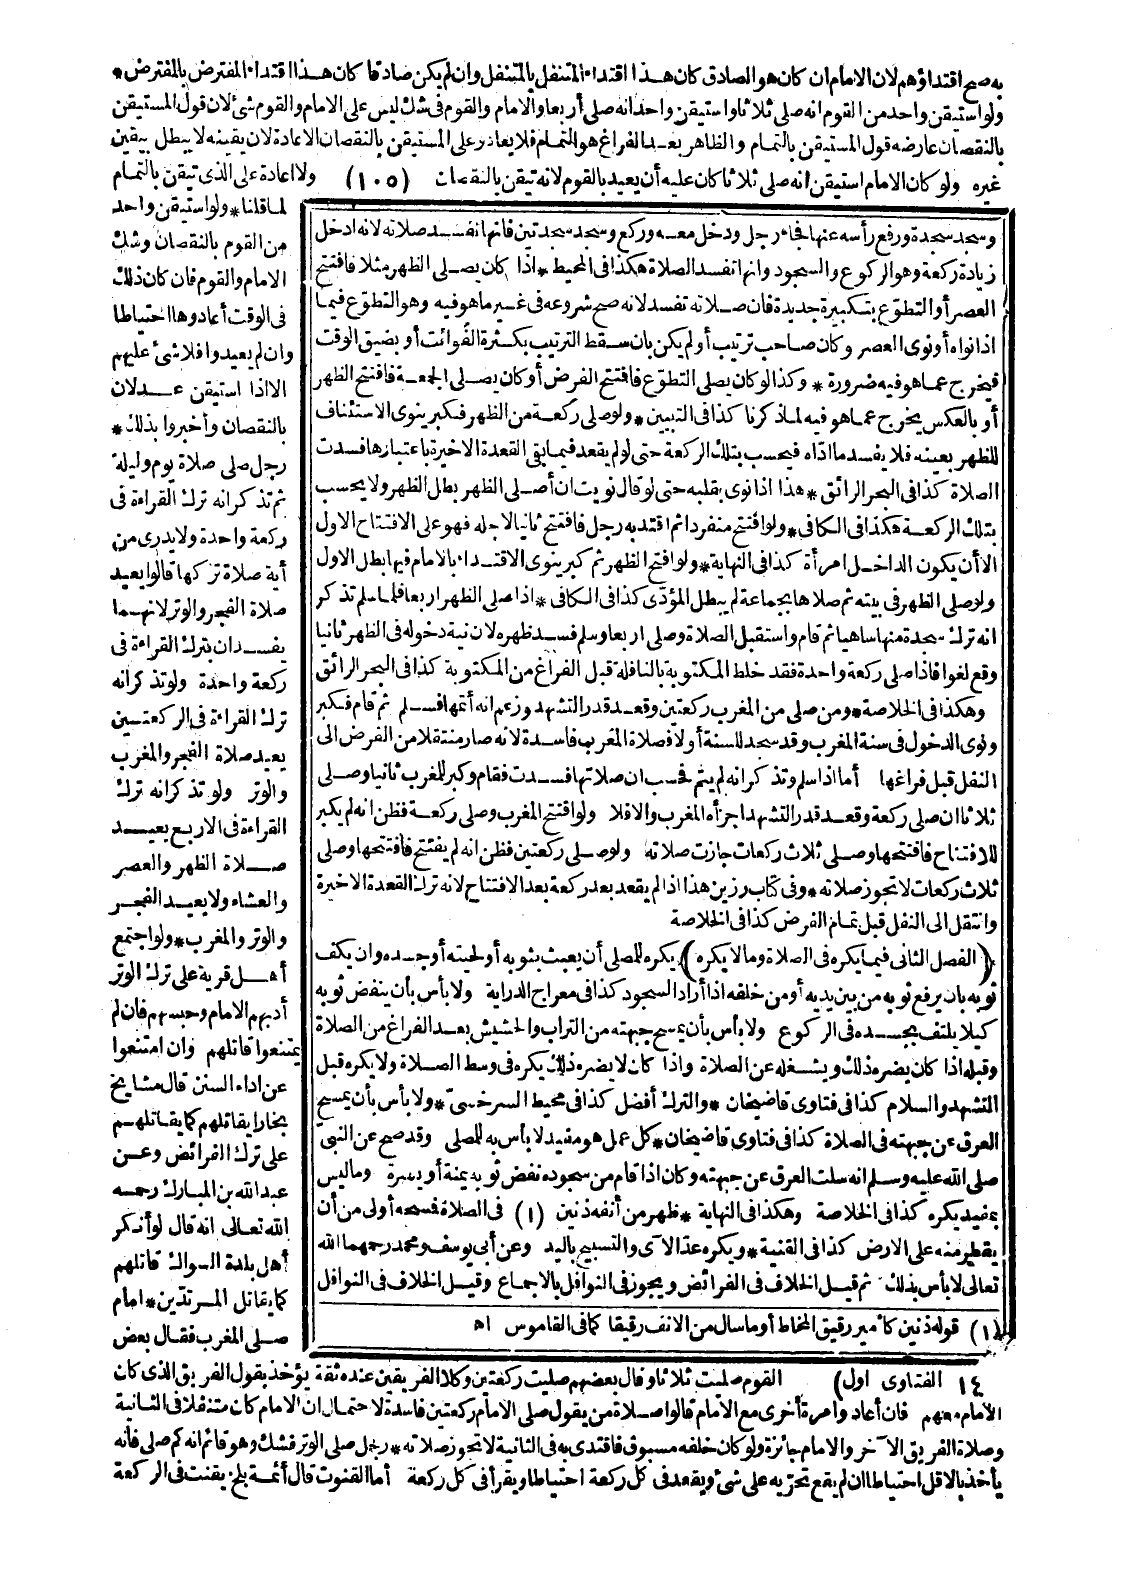 به صح اقتداؤهم لان الامام ان كان هو الصادق كان هذا اقتداء المتنفل بالمتنفل وان لم يكن صادقا كان هذا اقتداء المفترض بالمفترض *
ولو استيقن واحد من القوم انه صلى ثلاثا واستيقن واحد انه صلى أربعا والامام والقوم فى شك ليس على الامام والقوم شئ لان قول المستيقن
بالنقصان عارضه قول المستيقن بالتمام والظاهر بعد الفراغ هو التمام فلا يعاد وعلى المستيقن بالنقصان الاعادة لان يقينه لا يبطل بيقين
غيره ولو كان الامام استيقن انه صلى ثلاثا كان عليه أن يعيد بالقوم لانه تيقن بالنقصان (١٠٥) ولا اعادة على الذى تيقن بالتمام
لما قلنا * ولو استيقن واحد
من القوم بالنقصان وشك
الامام والقوم فان كان ذلك
فى الوقت أعادوها احتياطا
وان لم يعيدوا فلا شئ عليهم
الا اذا استيقن عدلان
بالنقصان وأخبروا بذلك *
رجل صلى صلاة يوم وليلة
ثم تذكر انه ترك القراءة فى
ركعة واحدة ولا يدرى من
أية صلاة تركها قالوا يعيد
صلاة الفجر والوتر لانهما
يفسدان بترك القراءة فى
ركعة واحدة ولو تذكر انه
ترك القراءة فى الركعتين
يعيد صلاة الفجر والمغرب
والوتر ولو تذكر انه ترك
القراءة فى الاربع يعيد
صلاة الظهر والعصر
والعشاء ولا يعيد الفجر
والوتر والمغرب * ولو اجتمع
أهل قرية على ترك الوتر
أدبهم الامام وحبسهم فان لم
يمتنعوا قاتلهم وان امتنعوا
عن اداء السنن قال مشايخ
بخارا يقاتلهم كما يقاتلهم
على ترك الفرائض وعن
عبد الله بن المبارك رحمه
الله تعالى انه قال لو أنكر
أهل بلدة السواك قاتلهم
كما يقاتل المرتدين * امام
صلى المغرب فقال بعض
وسجد سجدة ورفع رأسه عنها فجاء رجل ودخل معه وركع وسجد سجدتين فانها تفسد صلاته لانه ادخل
زيادة ركعة وهو الركوع والسجود وانها تفسد الصلاة هكذا فى المحيط * اذا كان يصلى الظهر مثلا فافتتح
العصر أو التطوع بتكبيرة جديدة فان صلاته تفسد لانه صح شروعه فى غير ما هو فيه وهو التطوع فيما
اذا نواه أو نوى العصر وكان صاحب ترتيب أو لم يكن بان سقط الترتيب بكثرة الفوائت أو بضيق الوقت
فيخرج عما هو فيه ضرورة * وكذا لو كان يصلى التطوع فافتتح الفرض أو كان يصلى الجمعة فافتتح الظهر
أو بالعكس يخرج عما هو فيه لما ذكرنا كذا فى التبيين * ولو صلى ركعة من الظهر فكبر ينوى الاستئناف
للظهر بعينه فلا يفسد ما اداه فيحسب بتلك الركعة حتى لو لم يقعد فيما بقى القعدة الاخيرة باعتبارها فسدت
الصلاة كذا فى البحر الرائق * هذا اذا نوى بقلبه حتى لو قال نويت ان أصلى الظهر بطل الظهر ولا يحسب
بتلك الركعة هكذا فى الكافى * ولو افتتح منفردا ثم اقتدى به رجل فافتتح ثانيا لاجله فهو على الافتتاح الاول
الا أن يكون الداخل امرأة كذا فى النهاية * ولو افتتح الظهر ثم كبر ينوى الاقتداء بالامام فيها بطل الاول
ولو صلى الظهر فى بيته ثم صلاها بجماعة لم يبطل المؤدى كذا فى الكافى * اذا صلى الظهر اربعا فلما سلم تذكر
انه ترك سجدة منها ساهيا ثم قام واستقبل الصلاة وصلى اربعا وسلم فسد ظهره لان نية دخوله فى الظهر ثانيا
وقع لغوا فاذا صلى ركعة واحدة فقد خلط المكتوبة بالنافلة قبل الفراغ من المكتوبة كذا فى البحر الرائق
وهكذا فى الخلاصة * ومن صلى من المغرب ركعتين وقعد قدر التشهد وزعم انه أتمها فسلم ثم قام فكبر
ونوى الدخول فى سنة المغرب وقد سجد للسنة أو لا فصلاة المغرب فاسدة لانه صار منتقلا من الفرض الى
النفل قبل فراغها أما اذا سلم وتذكر انه لم يتم فحسب ان صلاتها فسدت فقام وكبر للمغرب ثانيا وصلى
ثلاثا ان صلى ركعة وقعد قدر التشهد اجزأه المغرب والا فلا ولو افتتح المغرب وصلى ركعة فظن انه لم يكبر
للافتتاح فافتتحها وصلى ثلاث ركعات جازت صلاته ولو صلى ركعتين فظن انه لم يفتتح فافتتحها وصلى
ثلاث ركعات لا تجوز صلاته * وفى كتاب رزين هذا اذا لم يقعد بعد ركعة بعد الافتتاح لانه ترك القعدة الاخيرة
وانتقل الى النفل قبل تمام الفرض كذا فى الخلاصة
(الفصل الثانى فيما يكره فى الصلاة وما لا يكره) يكره للمصلى أن يعبث بثوبه أو لحيته أو جسده وان يكف
ثوبه بان يرفع ثوبه من بين يديه أو من خلفه اذا أراد السجود كذا فى معراج الدراية ولا بأس بأن ينفض ثوبه
كيلا يلتف بجسده فى الركوع ولا بأس بأن يمسح جبهته من التراب والحشيش بعد الفراغ من الصلاة
وقبله اذا كان يضره ذلك ويشغله عن الصلاة واذا كان لا يضره ذلك يكره فى وسط الصلاة ولا يكره قبل
التشهد والسلام كذا فى فتاوى قاضيخان * والترك أفضل كذا فى محيط السرخسى * ولا بأس بأن يمسح
العرق عن جبهته فى الصلاة كذا فى فتاوى قاضيخان * كل عمل هو مفيد لا بأس به للمصلى وقد صح عن النبى
صلى الله عليه وسلم انه سلت العرق عن جبهته وكان اذا قام من سجوده نفض ثوبه يمنة أو يسرة وما ليس
بمفيد يكره كذا فى الخلاصة وهكذا فى النهاية * ظهر من أنفه ذنين (١) فى الصلاة فمسحه أولى من أن
يقطر منه على الارض كذا فى القنية * ويكره عد الآى والتسبيح باليد وعن أبى يوسف ومحمد رحمهما الله
تعالى لا بأس بذلك ثم قيل الخلاف فى الفرائض ويجوز فى النوافل بالاجماع وقيل الخلاف فى النوافل
(١) قوله ذنين كأمير رقيق المخاط أو ما سال من الانف رقيقا كما فى القاموس اه
١٤ الفتاوى اول) القوم صليت ثلاثا وقال بعضهم صليت ركعتين وكلا الفريقين عنده ثقة يؤخذ بقول الفريق الذى كان
الامام معهم فان أعادوا مرة أخرى مع الامام قالوا صلاة من يقول صلى الامام ركعتين فاسدة لاحتمال ان الامام كان متنفلا فى الثانية
وصلاة الفريق الآخر والامام جائزة ولو كان خلفه مسبوق فاقتدى به فى الثانية لا تجوز صلاته * رجل صلى الوتر فشك وهو قائم انه كم صلى فانه
يأخذ بالاقل احتياطا ان لم يقع تحريه على شئ ويقعد فى كل ركعة احتياطا ويقرأ فى كل ركعة أما القنوت قال أئمة بلخ يقنت فى الركعة